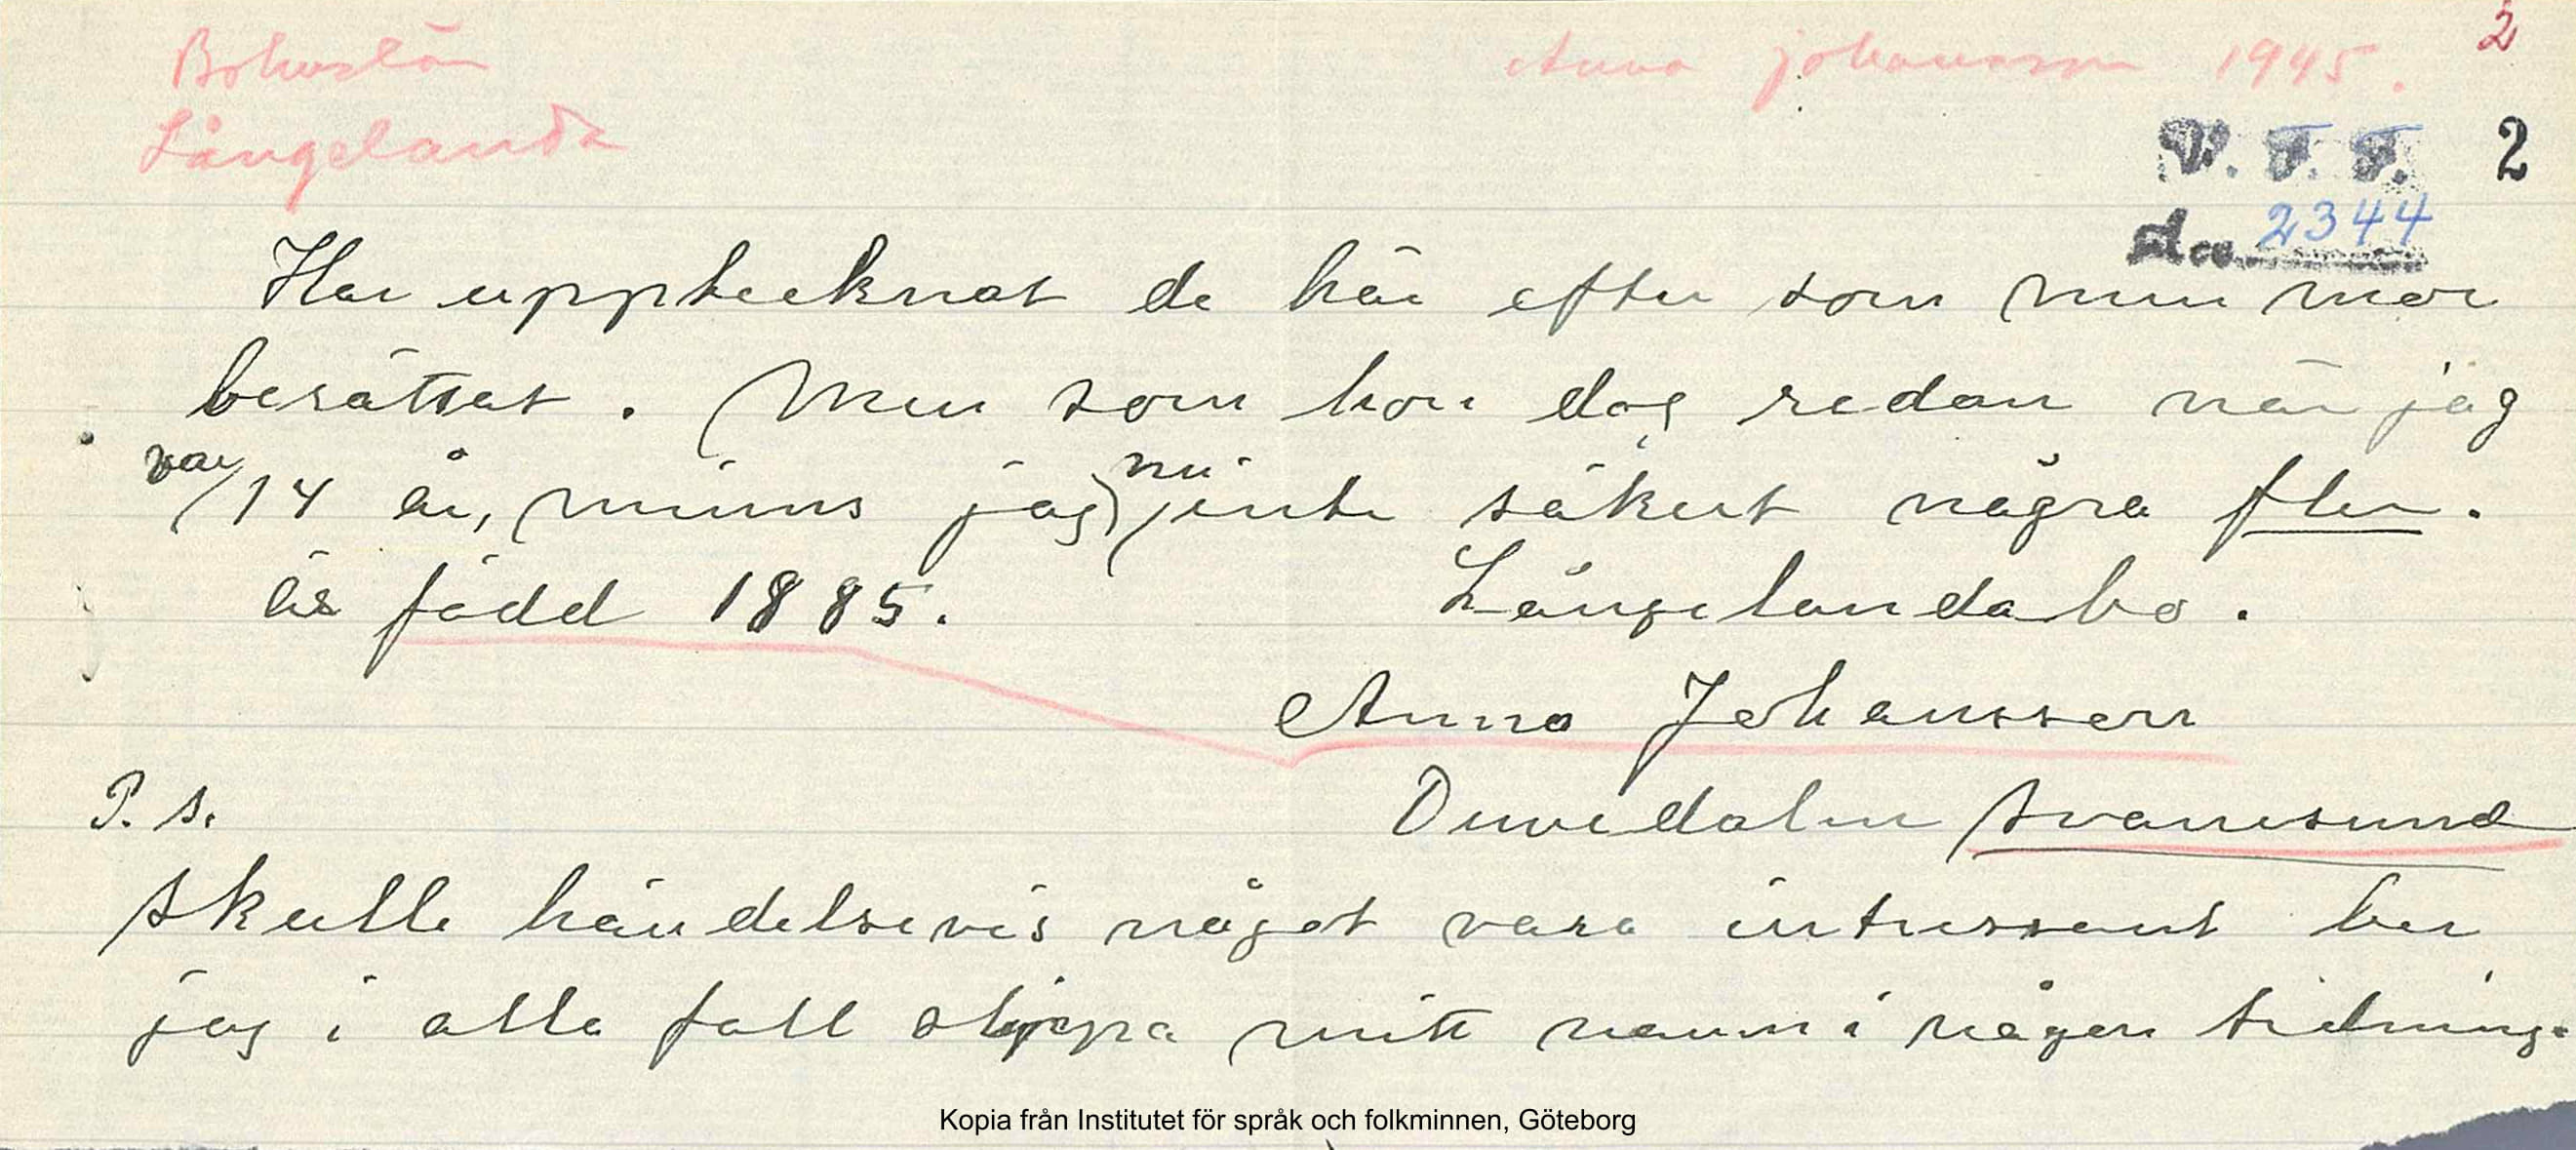 Bohuslän Anna Johansson 1945. 2
Långelanda
V. F. F. 2
Acc. 2344
Har upptecknat de här efter som min mor
berättat. Men som hon dog redan när jag
var 14 år, minns jag nu inte säkert några fler.
är född 1885. Långelandabo.
Anna Johansson
P. s. Duvedalen Svanesund
Skulle händelsevis något vara intressant ber
jag i alla fall slippa mitt namn i någon tidning.
Kopia från Institutet för språk och folkminnen, Göteborg